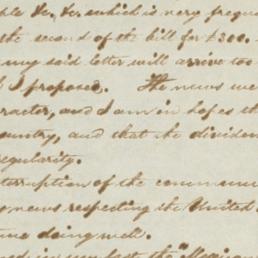 ble &c. &c. which is very frequ
the second of the bill for £300.
my said letter will arrive too
I proposed. The news we
racter, and I am in hopes th
ountry, and that the dividen
egularity.
terruption of the commun
news respecting the United
me doing well.